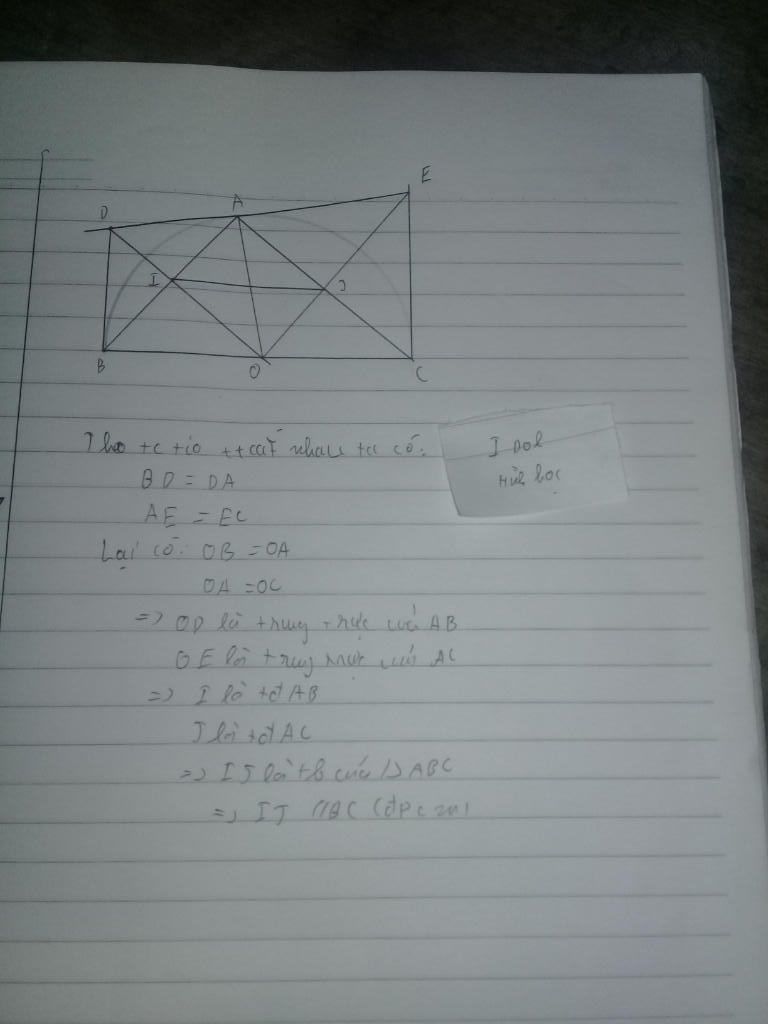 E
A
D
I
J
B
O
C
Theo t/c tio tt cắt nhau ta có:
BD = DA
AE = EC
I Dol
Lại có: OB = OA
OA = OC
=> OD là trung trực của AB
OE là trung trực của AC
=> I là tđ AB
J là tđ AC
=> IJ là tb của △ABC
=> IJ // BC (đpcm)